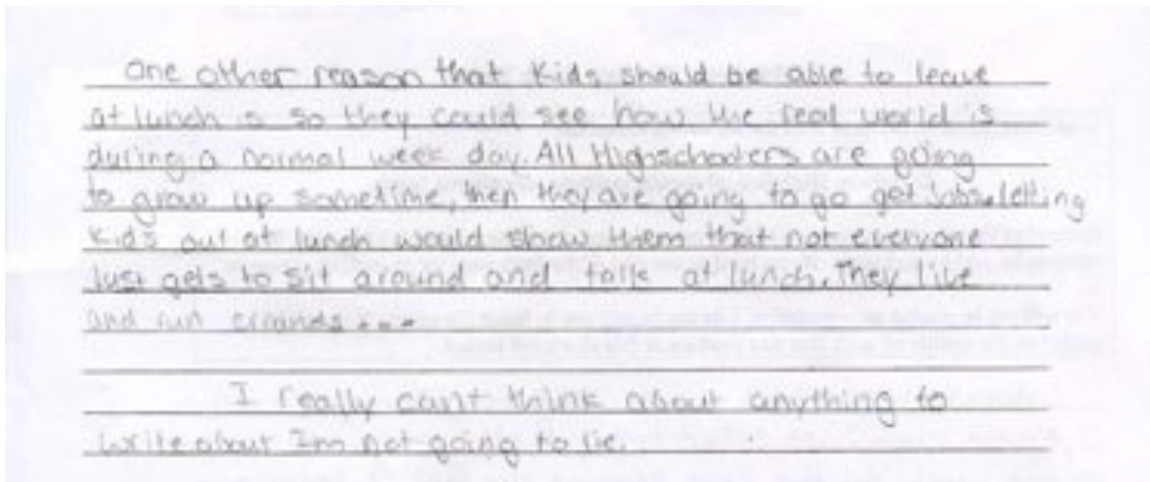 One other reason that kids should be able to leave
at lunch is so they could see how the real world is
during a normal week day. All Highschoolers are going
to grow up sometime, then they are going to go get jobs. letting
kids out at lunch would show them that not everyone
Just gets to sit around and talk at lunch. They live
and run errands...
I really can't think about anything to
write about Im not going to lie.